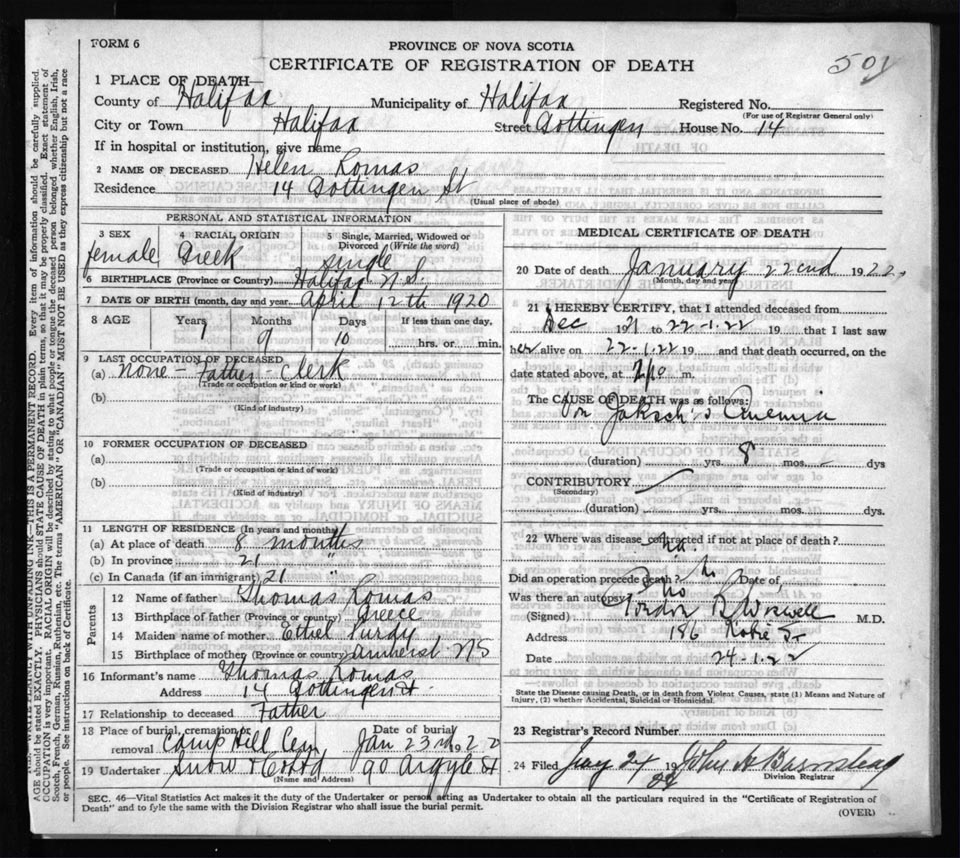 FORM 6
PROVINCE OF NOVA SCOTIA
CERTIFICATE OF REGISTRATION OF DEATH
501
1 PLACE OF DEATH—
County of Halifax Municipality of Halifax Registered No.
(For use of Registrar General only)
City or Town Halifax Street Gottingen House No. 14
If in hospital or institution, give name
2 NAME OF DECEASED Helen Romas
Residence 14 Gottingen St
(Usual place of abode)
PERSONAL AND STATISTICAL INFORMATION
3 SEX 4 RACIAL ORIGIN 5 Single, Married, Widowed or Divorced (Write the word)
female Greek single
6 BIRTHPLACE (Province or Country) Halifax N.S.
7 DATE OF BIRTH (month, day and year) April 12th 1920
8 AGE Years Months Days If less than one day,
1 9 10 hrs. or min.
9 LAST OCCUPATION OF DECEASED
(a) none - Father - Clerk
(Trade or occupation or kind or work)
(b)
(Kind of industry)
10 FORMER OCCUPATION OF DECEASED
(a)
(Trade or occupation or kind of work)
(b)
(Kind of industry)
11 LENGTH OF RESIDENCE (In years and months)
(a) At place of death 8 months
(b) In province 21 "
(c) In Canada (if an immigrant) 21 "
Parents
12 Name of father Thomas Romas
13 Birthplace of father (Province or country) Greece
14 Maiden name of mother Ethel Purdy
15 Birthplace of mother (Province or country) Amherst NS
16 Informant's name Thomas Romas
Address 14 Gottingen St.
17 Relationship to deceased Father
18 Place of burial, cremation or removal Camp Hill Cem. Date of burial Jan 23rd 192
19 Undertaker Snow & Co Ltd 90 Argyle St
(Name and Address)
MEDICAL CERTIFICATE OF DEATH
20 Date of death January 22nd 1922
(Month, day and year)
21 I HEREBY CERTIFY, that I attended deceased from
Dec 1921 to 22-1-22 19 that I last saw
her alive on 22-1-22 19 and that death occurred, on the
date stated above, at 210 m.
The CAUSE OF DEATH was as follows:
Von Jaksch's Anemia
(duration) yrs. 8 mos. dys
CONTRIBUTORY
(Secondary)
(duration) yrs. mos. dys.
22 Where was disease contracted if not at place of death?
Did an operation precede death? no Date of
Was there an autopsy? no
(Signed) Gordon B Wiswell M.D.
Address 186 Robie St
Date 24-1-22
State the Disease causing Death, or in death from Violent Causes, state (1) Means and Nature of
Injury, (2) whether Accidental, Suicidal or Homicidal.
23 Registrar's Record Number
24 Filed Jany 24 19 22 John A Barnstead
Division Registrar
SEC. 46—Vital Statistics Act makes it the duty of the Undertaker or person acting as Undertaker to obtain all the particulars required in the "Certificate of Registration of
Death" and to fyle the same with the Division Registrar who shall issue the burial permit.
(OVER)
WITH UNFADING INK—THIS IS A PERMANENT RECORD. Every item of information should be carefully supplied.
AGE should be stated EXACTLY. PHYSICIANS should STATE CAUSE OF DEATH in plain terms, so that it may be properly classified. Exact statement of
OCCUPATION is very important. RACIAL ORIGIN will be described by stating to what people or tongue the deceased person belonged whether English, Irish,
Scotch, French, German, Russian, Ruthenian, etc. The terms "AMERICAN" OR "CANADIAN" MUST NOT BE USED as they express citizenship but not a race
or people. See instructions on back of Certificate.